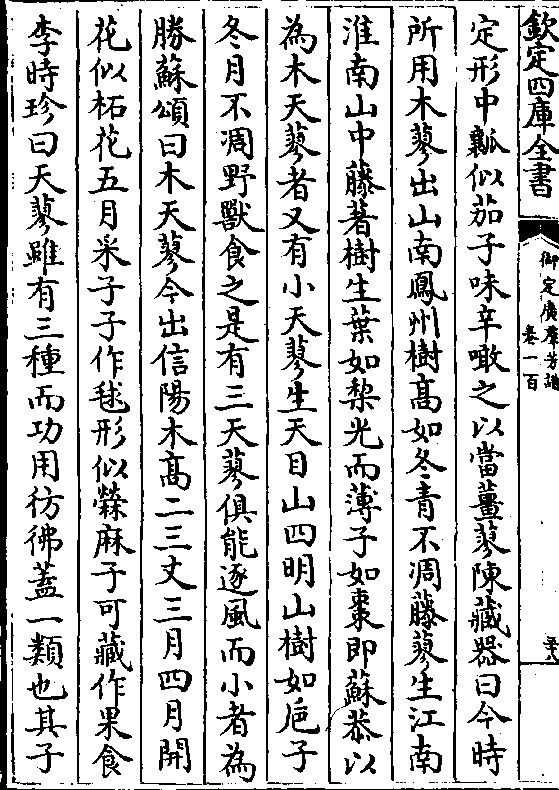 欽定四庫全書
御定廣羣芳譜
卷一百
定形中瓤似茄子味辛噉之以當薑蓼陳藏器曰今時
所用木蓼出山南鳳州樹高如冬青不凋藤蓼生江南
淮南山中藤著樹生葉如梨光而薄子如棗即蘇恭以
為木天蓼者又有小天蓼生天目山四明山樹如巵子
冬月不凋野獸食之是有三天蓼俱能逐風而小者為
勝蘇頌曰木天蓼今出信陽木高二三丈三月四月開
花似柘花五月采子子作毬形似檾麻子可藏作果食
李時珍曰天蓼雖有三種而功用彷彿蓋一類也其子